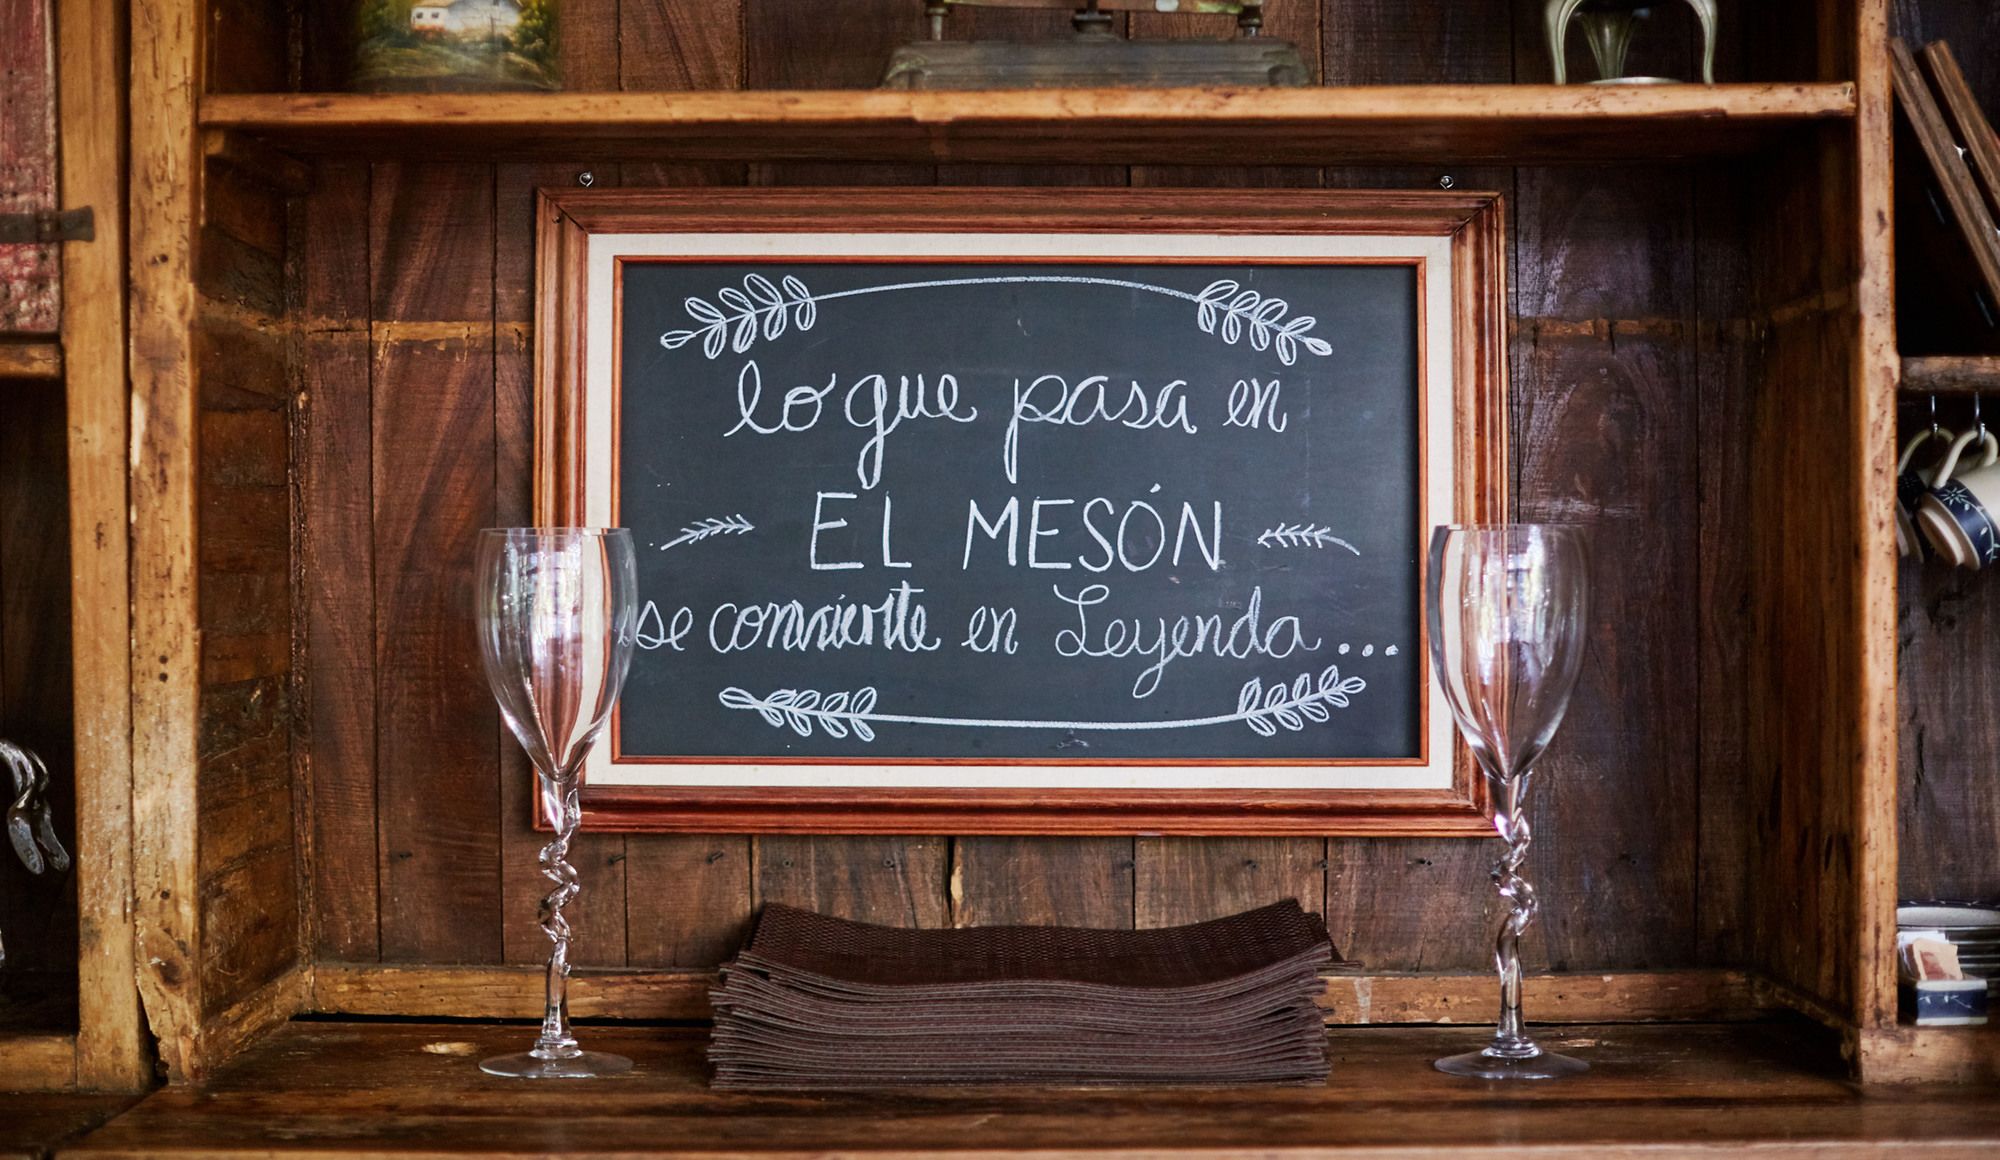 lo que pasa en
EL MESÓN
se convierte en Leyenda...